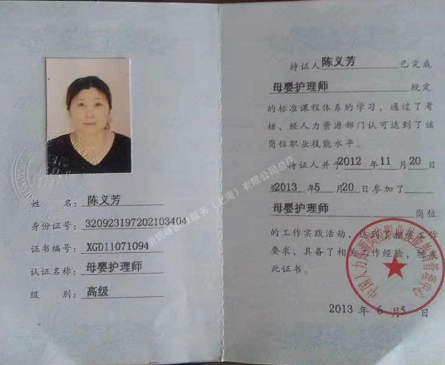 姓 名: 陈义芳
身份证号: 320923197202103404
证书编号: XGD11071094
认证名称: 母婴护理师
级 别: 高级
持证人 陈义芳 已完成
母婴护理师 规定
的标准课程体系的学习，通过了考
核，经人力资源部门认可达到了该
岗位职业技能水平。
持证人并于 2012 年 11 月 20 日
至 2013 年 5 月 20 日参加了
母婴护理师 岗位
的工作实践活动，达到了独张工作
要求，具备了相关工作经验，特发
此证书。
2013 年 6 月 5 日